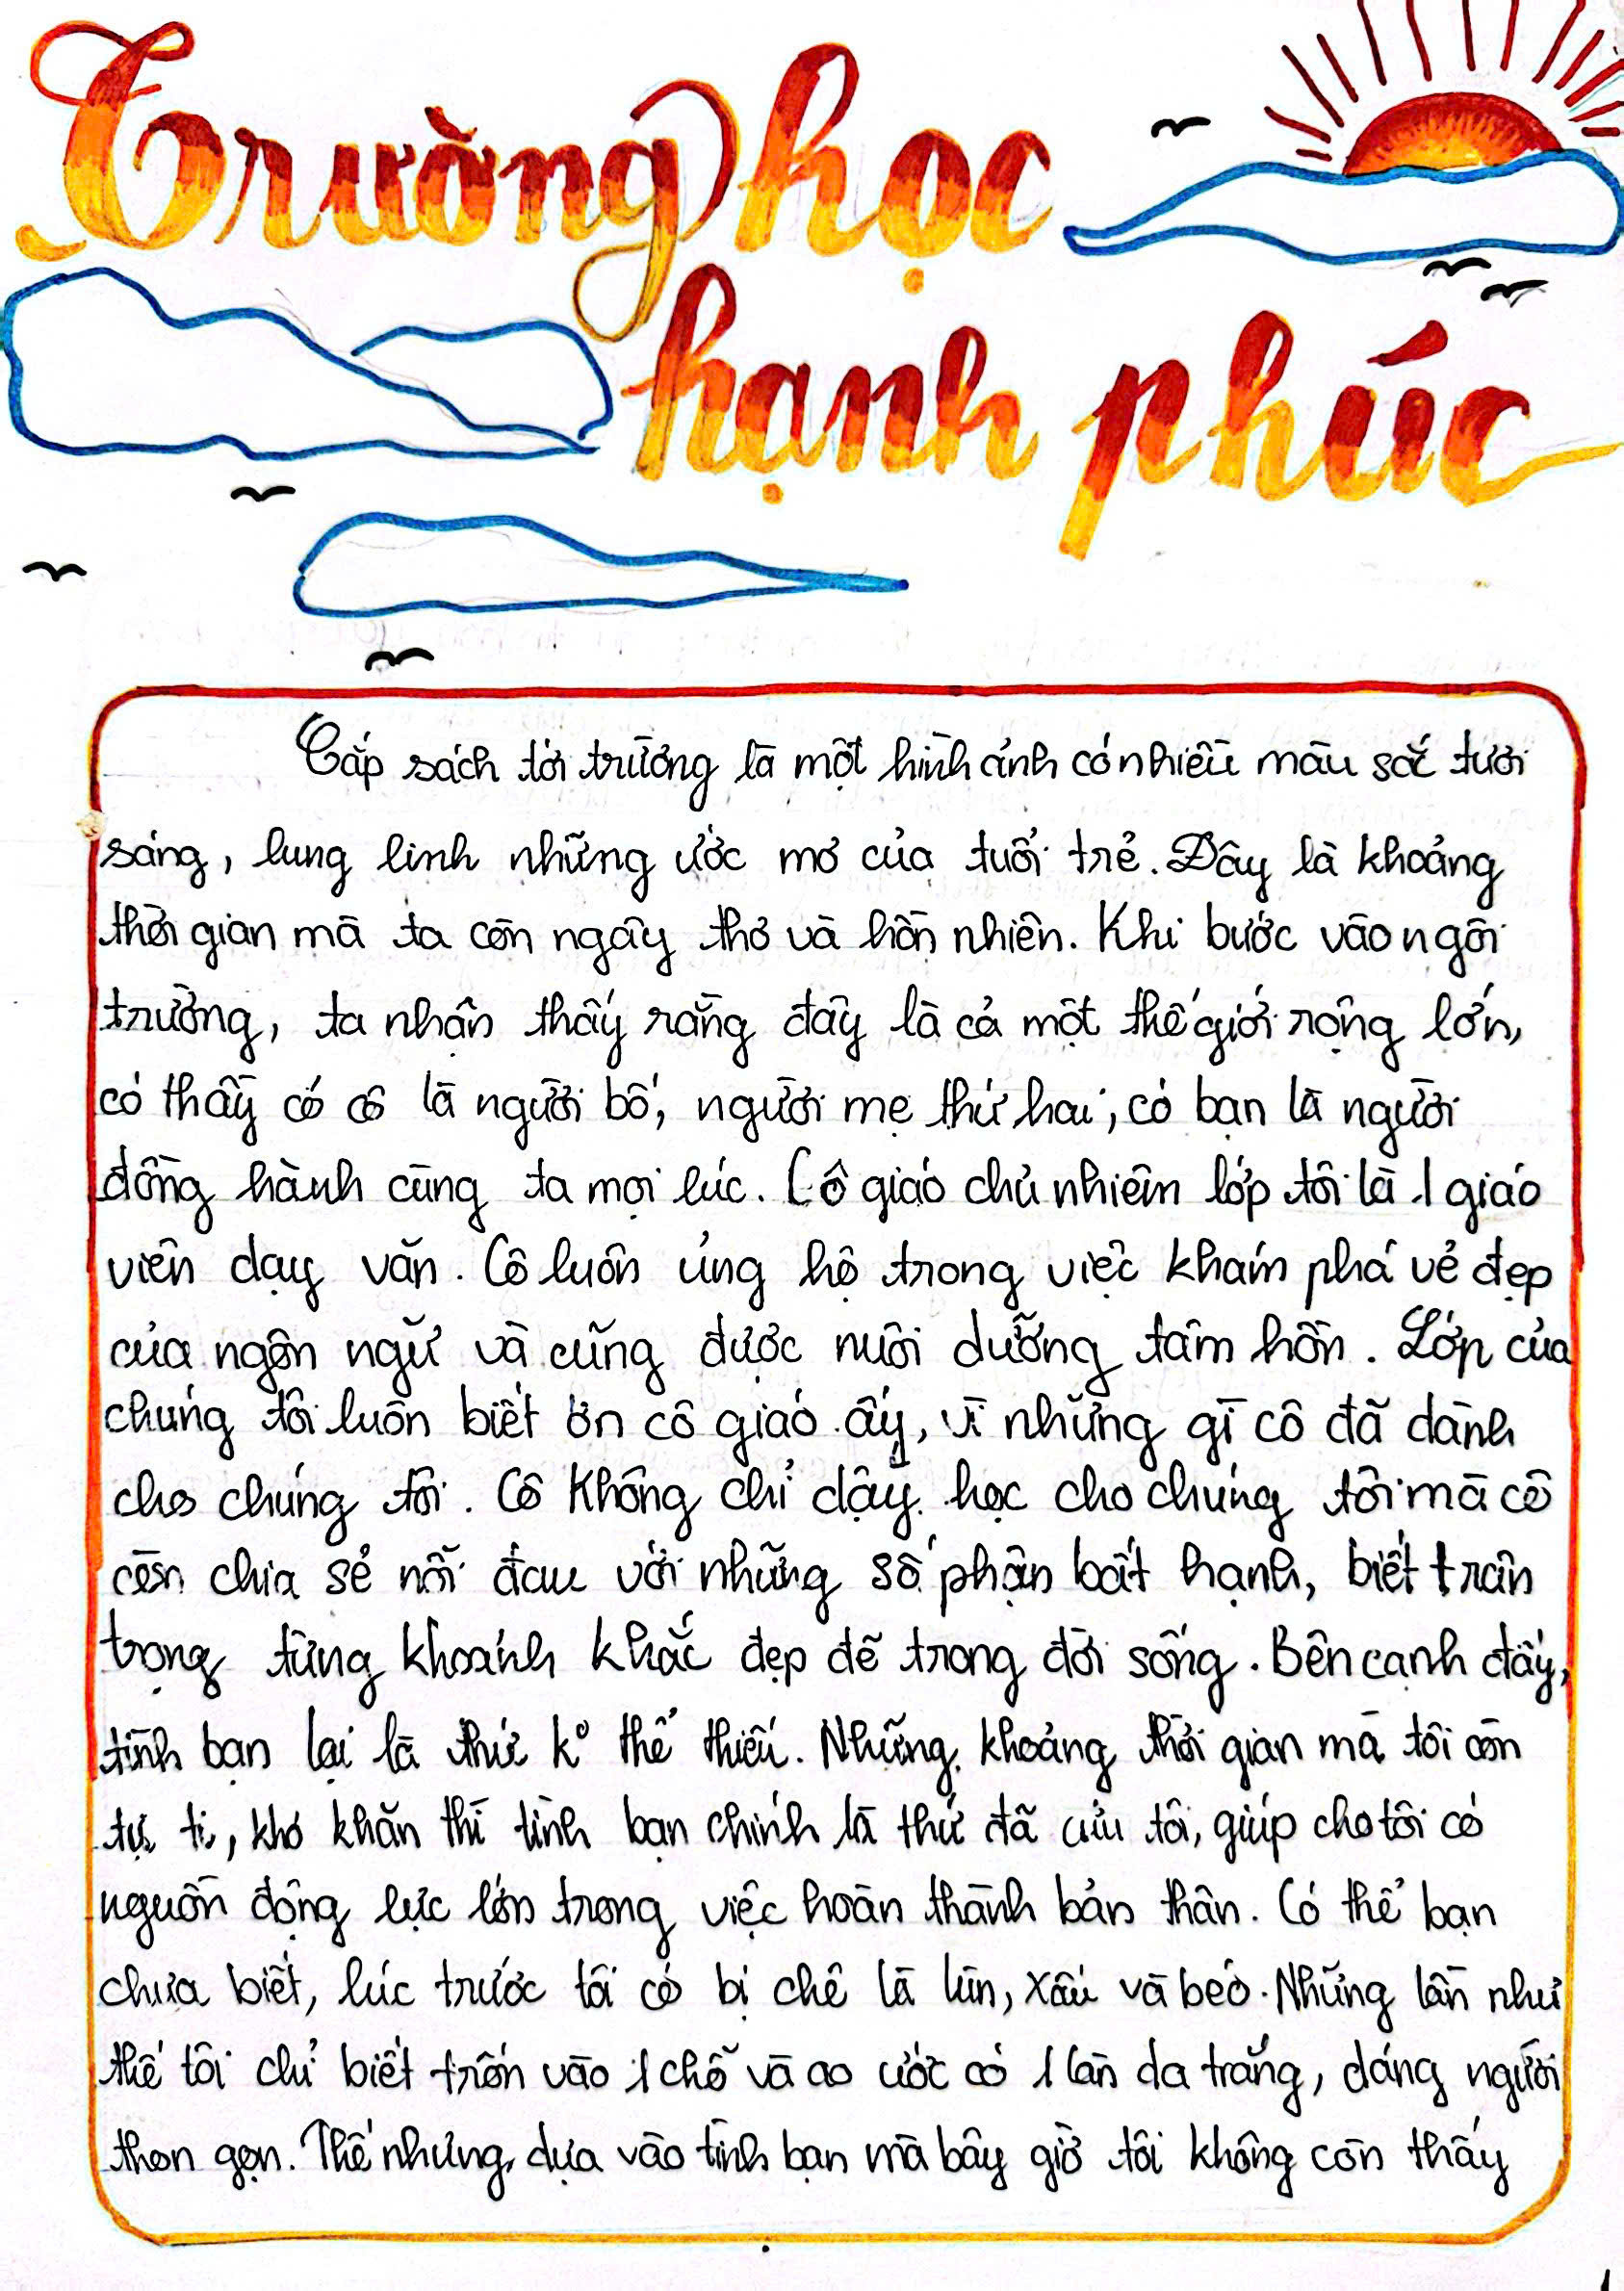 Trường học
hạnh phúc
Cắp sách tới trường là một hình ảnh có nhiều màu sắc tươi
sáng, lung linh những ước mơ của tuổi trẻ. Đây là khoảng
thời gian mà ta còn ngây thơ và hồn nhiên. Khi bước vào ngôi
trường, ta nhận thấy rằng đây là cả một thế giới rộng lớn,
có thầy có cô là người bố, người mẹ thứ hai, có bạn là người
đồng hành cùng ta mọi lúc. Cô giáo chủ nhiệm lớp tôi là 1 giáo
viên dạy văn. Cô luôn ủng hộ trong việc khám phá vẻ đẹp
của ngôn ngữ và cũng được nuôi dưỡng tâm hồn. Lớp của
chúng tôi luôn biết ơn cô giáo ấy, vì những gì cô đã dành
cho chúng tôi. Cô không chỉ dậy học cho chúng tôi mà cô
còn chia sẻ nỗi đau với những số phận bất hạnh, biết trân
trọng từng khoảnh khắc đẹp đẽ trong đời sống. Bên cạnh đấy,
tình bạn lại là thứ k° thể thiếu. Những khoảng thời gian mà tôi còn
tự ti, khó khăn thì tình bạn chính là thứ đã cứu tôi, giúp cho tôi có
nguồn động lực lớn trong việc hoàn thành bản thân. Có thể bạn
chưa biết, lúc trước tôi có bị chê là lùn, xấu và béo. Những lần như
thế tôi chỉ biết trốn vào 1 chỗ và ao ước có 1 làn da trắng, dáng người
thon gọn. Thế nhưng, dựa vào tình bạn mà bây giờ tôi không còn thấy